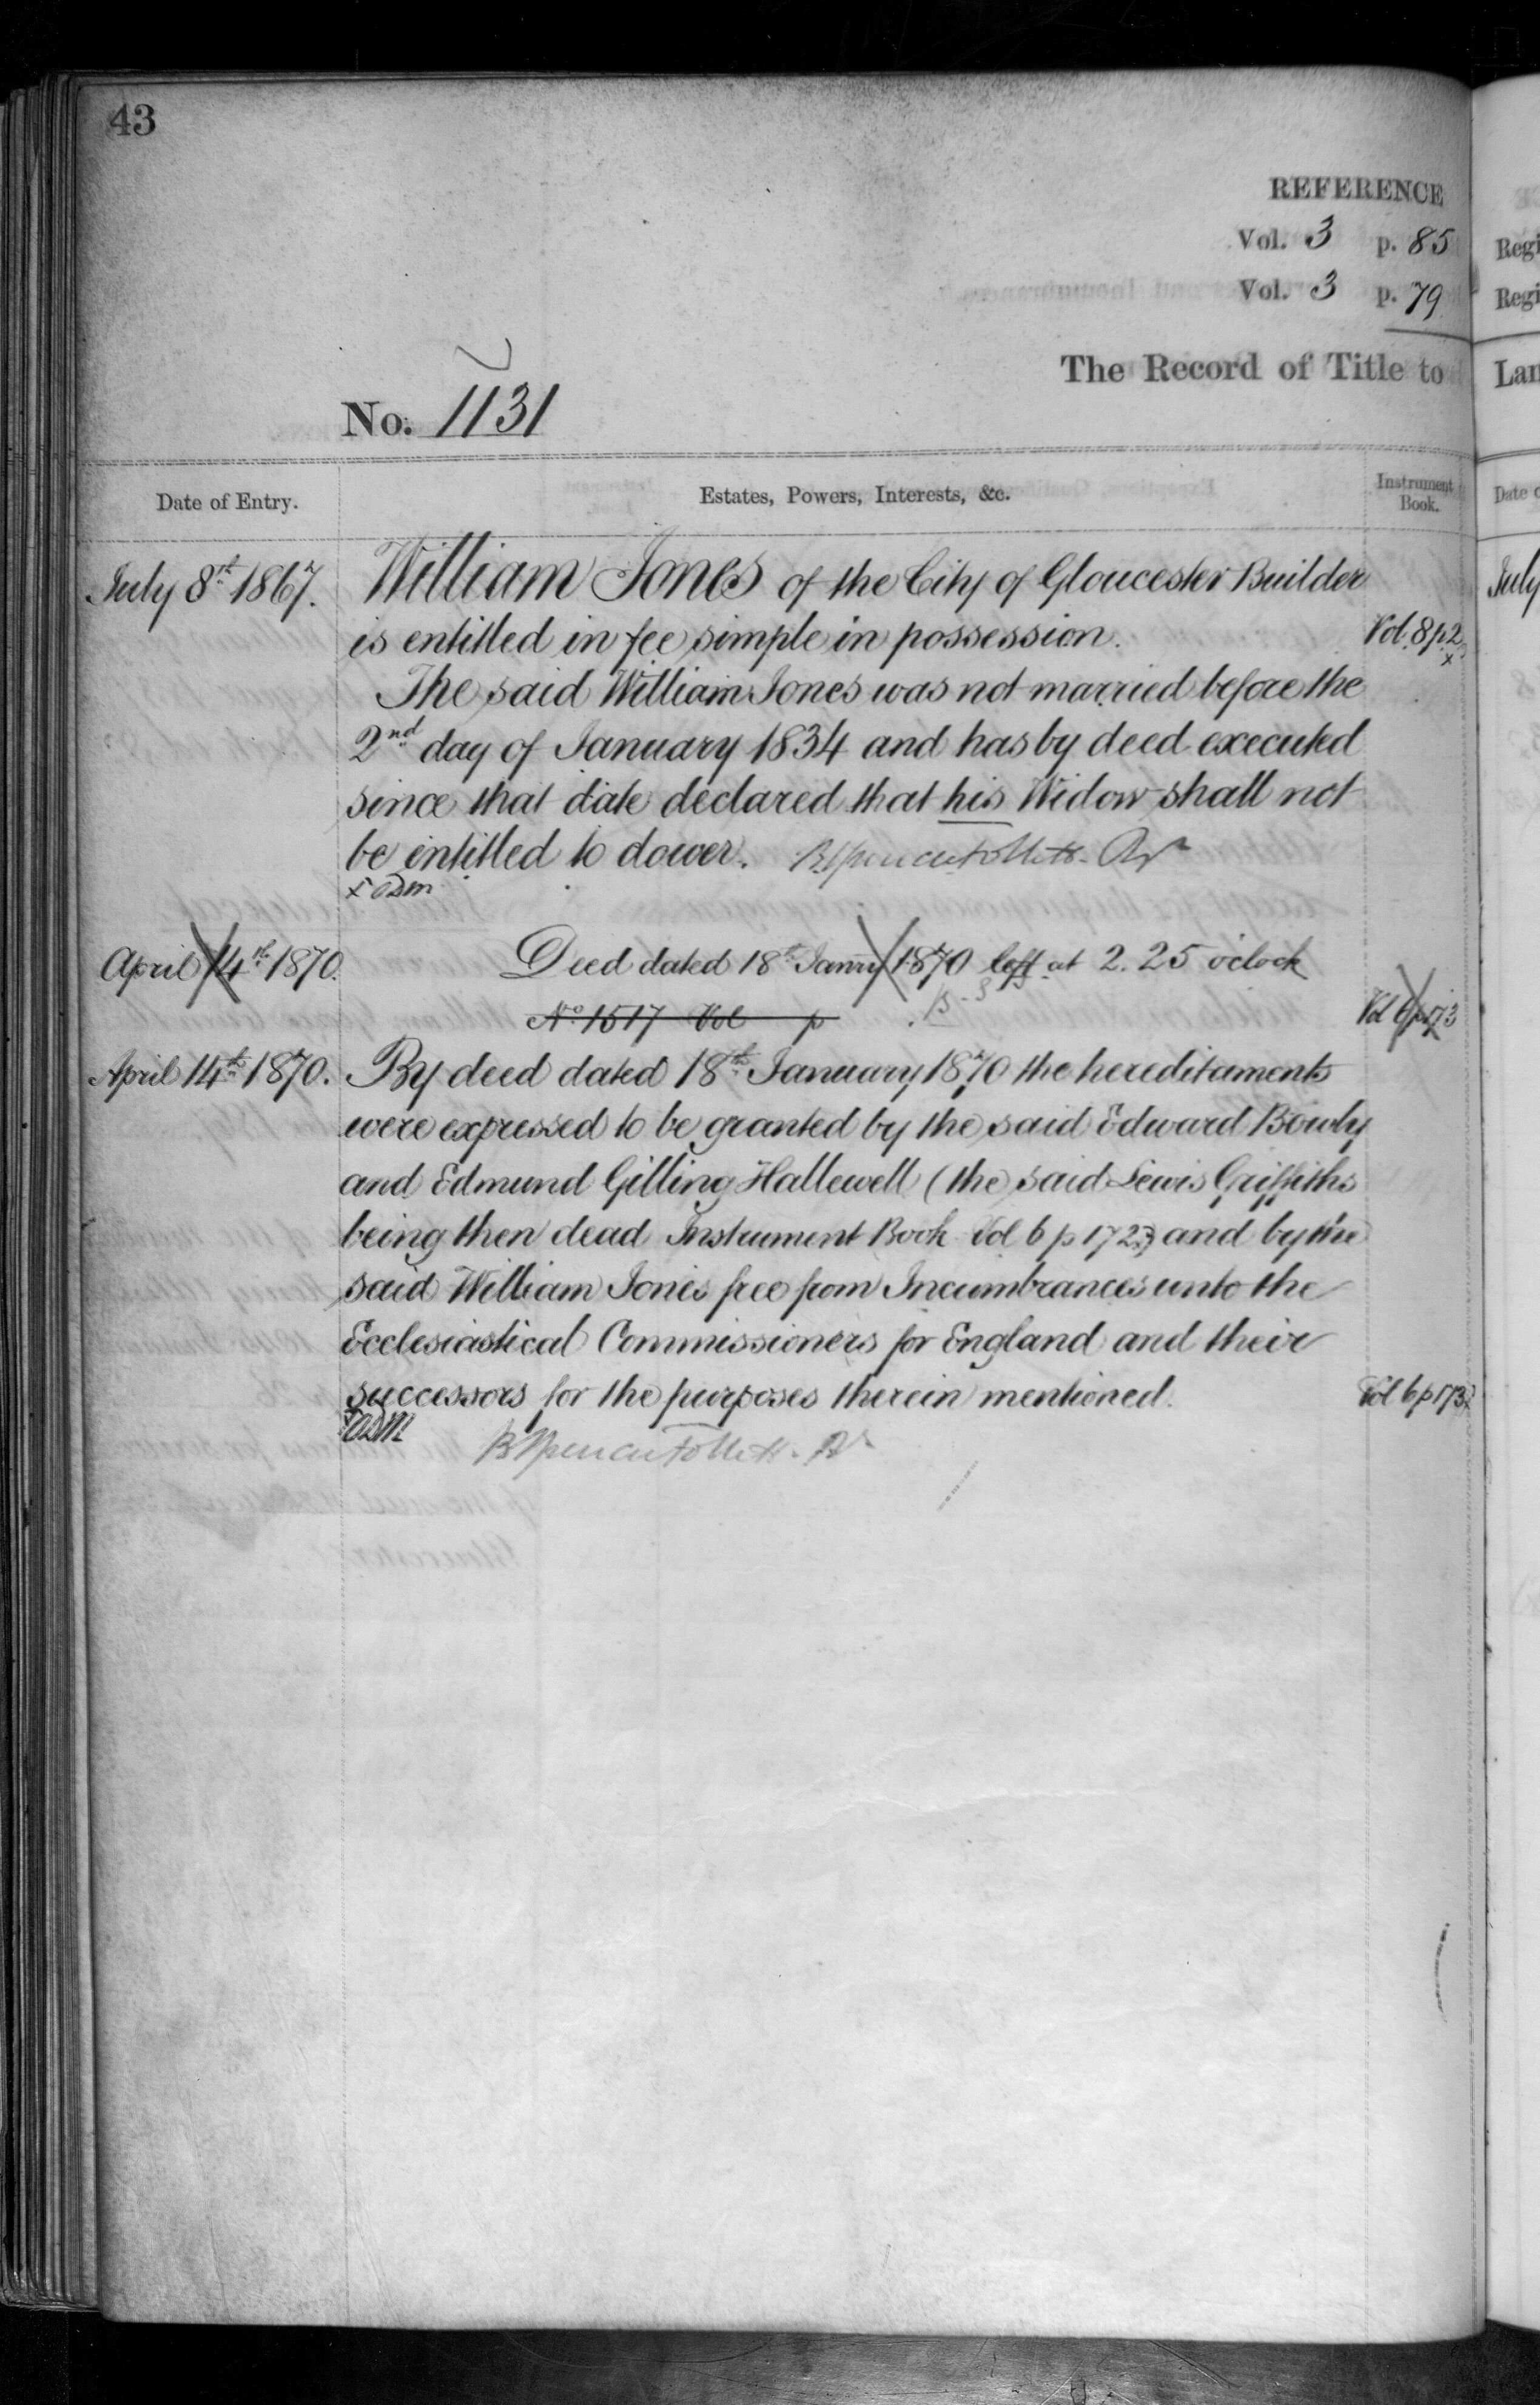 43
REFERENCE
Vol. 3 p. 85
Vol. 3 p. 79
The Record of Title to
No. 1131
Date of Entry. Estates, Powers, Interests, &c. Instrument Book.
July 8th 1867. William Jones of the City of Gloucester Builder
is entitled in fee simple in possession. Vol. 8 p. 2
The said William Jones was not married before the
2nd day of January 1834 and has by deed executed
since that date declared that his Widow shall not
be entitled to dower.
April 14th 1870. Deed dated 18th Janry 1870 left at 2.25 o'clock
No 1517 Vol p Vol 6 p 173
April 14th 1870. By deed dated 18th January 1870 the hereditaments
were expressed to be granted by the said Edward Bowly
and Edmund Gilling Hallewell (the said Lewis Griffiths
being then dead Instrument Book Vol 6 p 172) and by the
said William Jones free from Incumbrances unto the
Ecclesiastical Commissioners for England and their
successors for the purposes therein mentioned. Vol 6 p 173
Regi
Regi
Lan
Date o
July